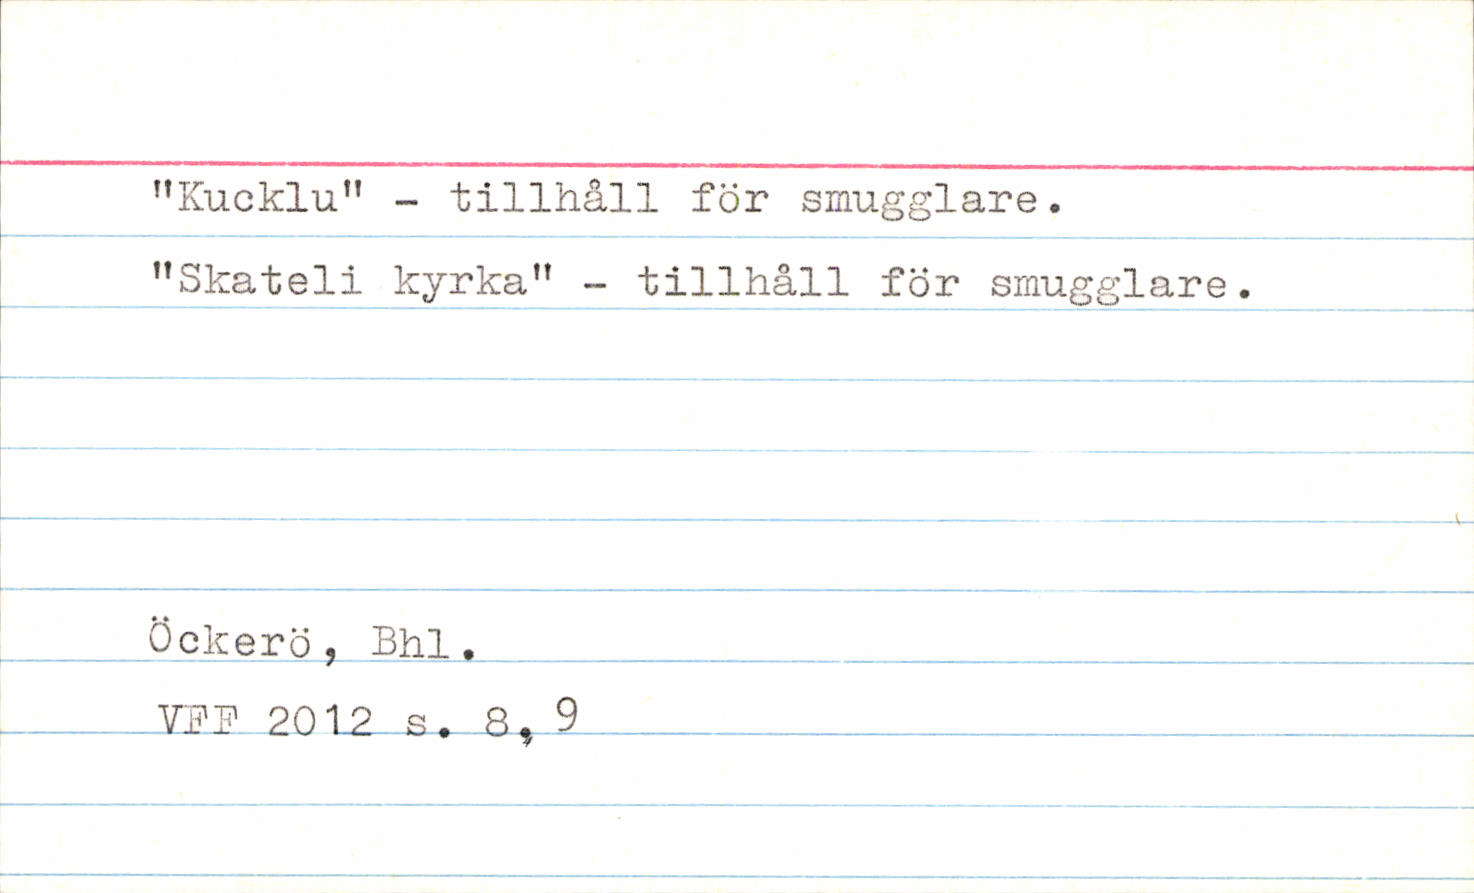 "Kucklu" - tillhåll för smugglare.
"Skateli kyrka" - tillhåll för smugglare.
Öckerö, Bhl.
VFF 2012 s. 8, 9